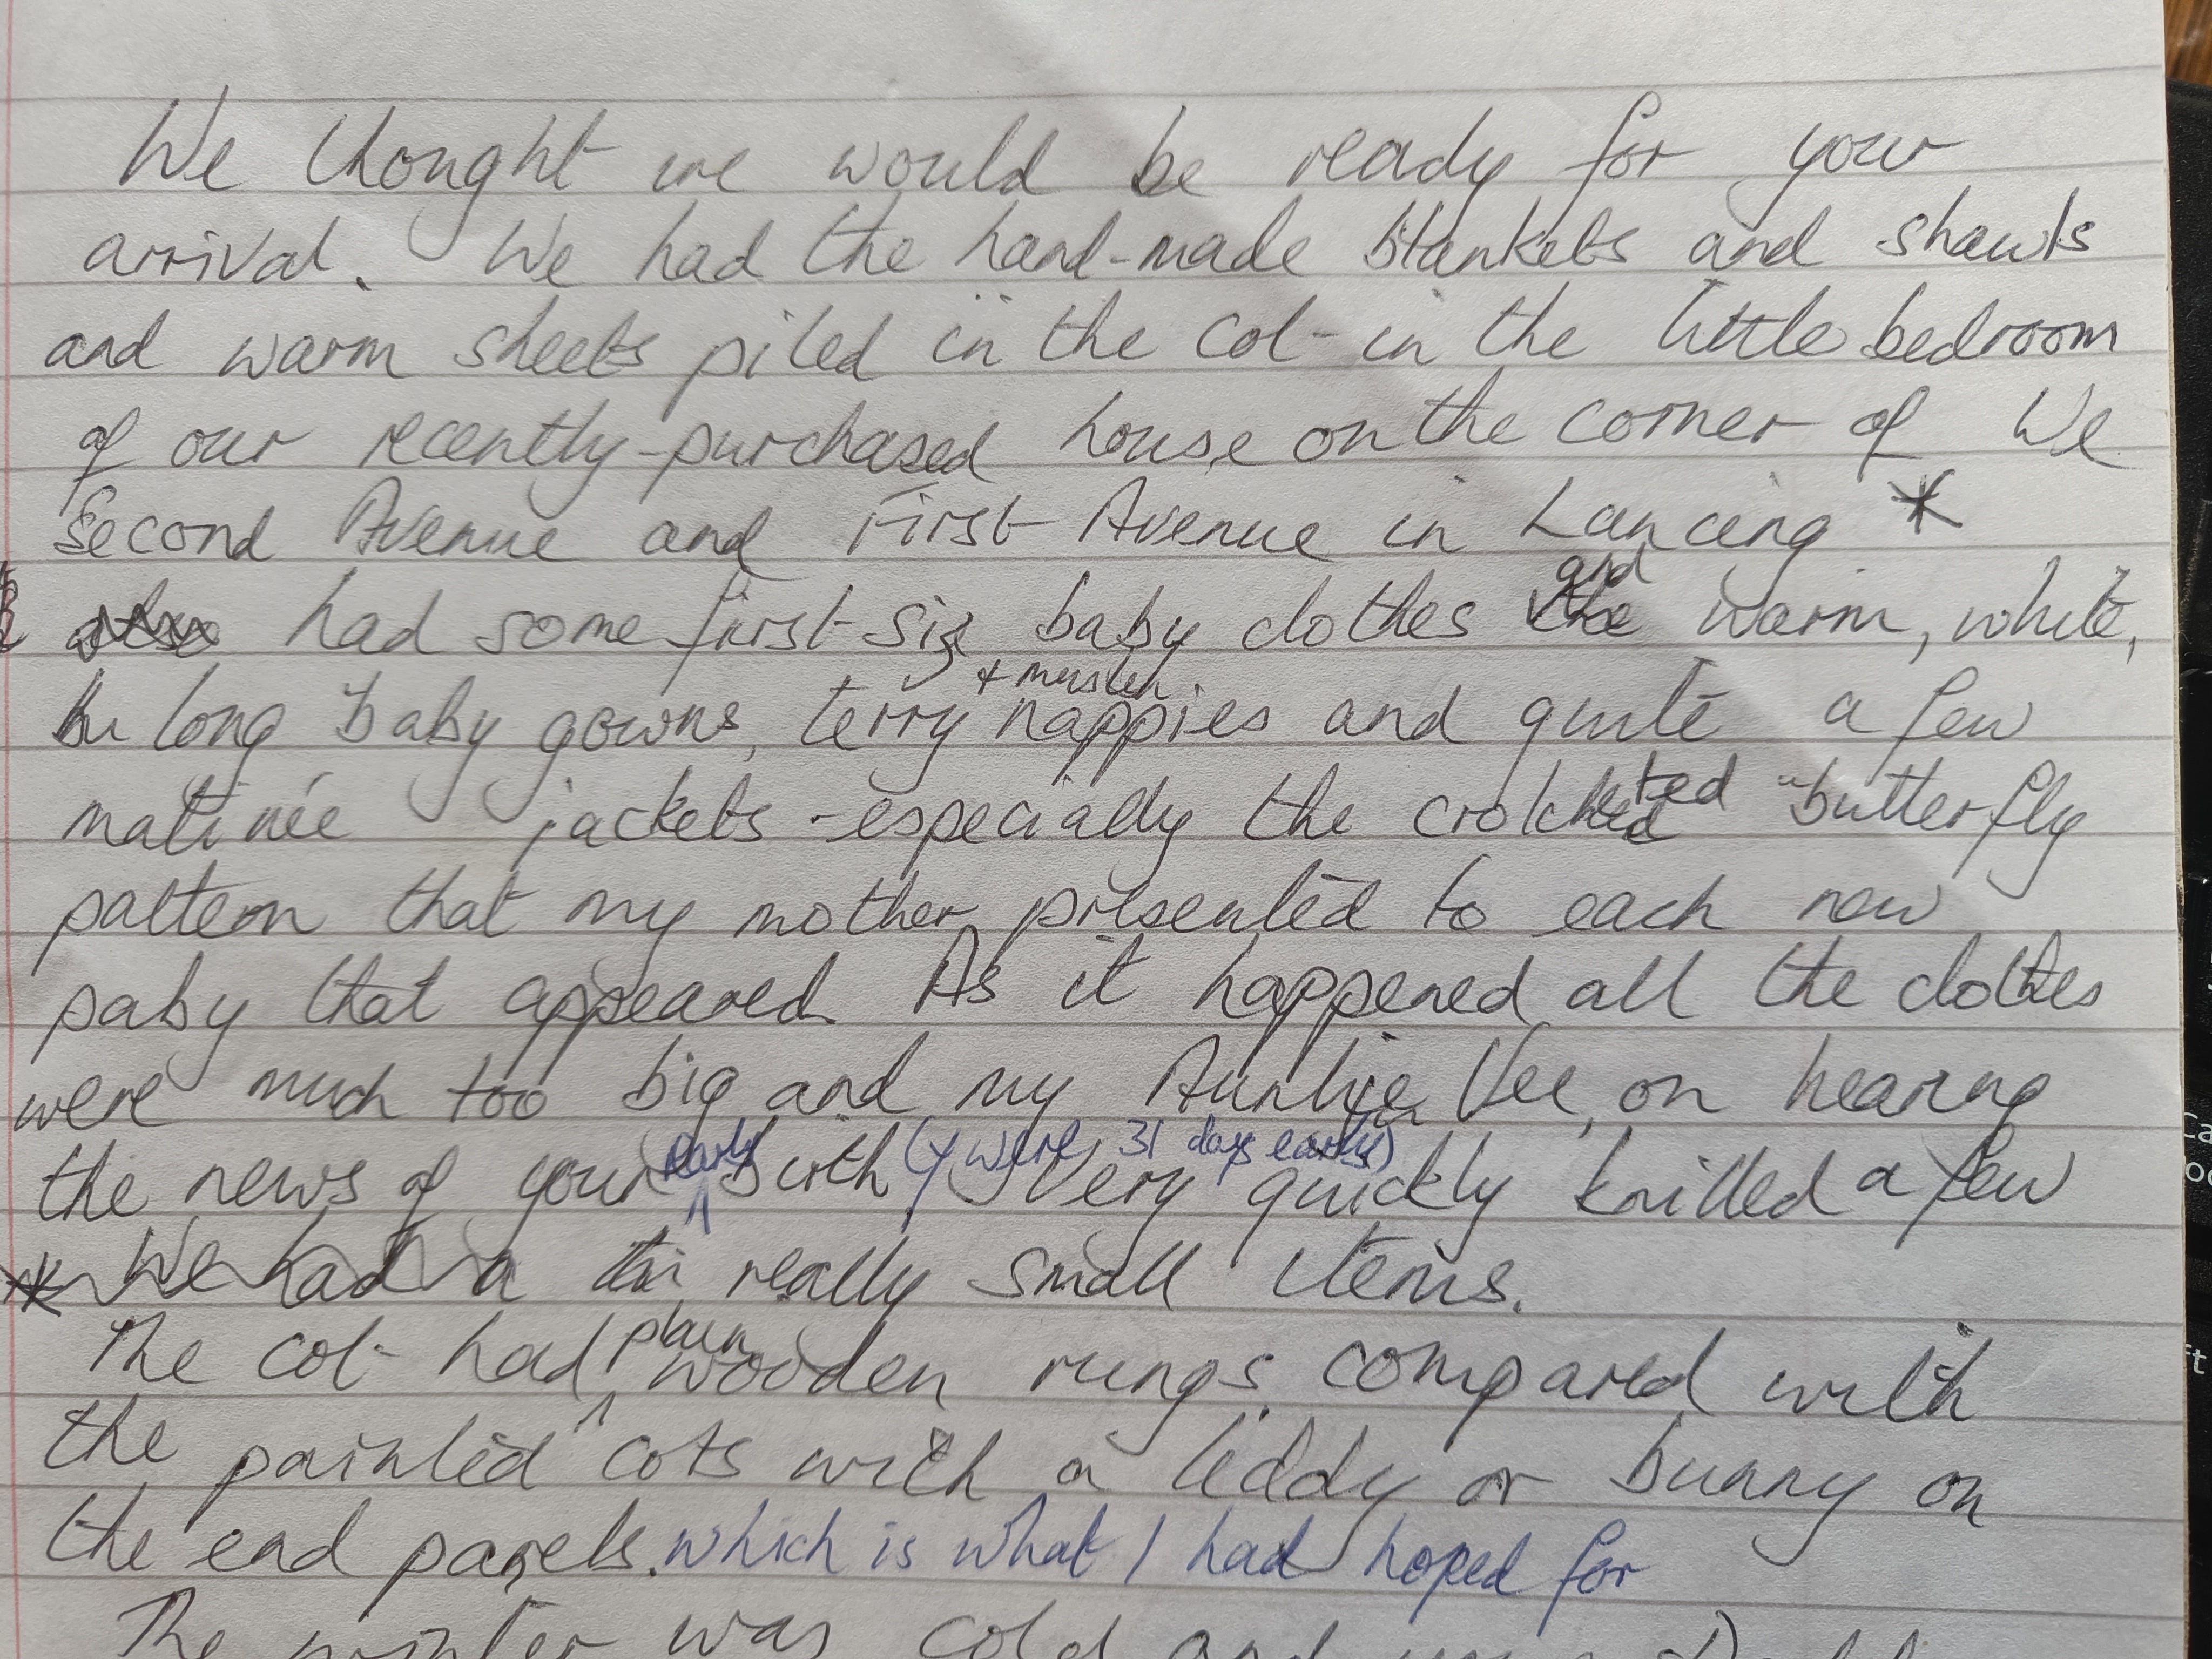 We thought we would be ready for your
arrival. We had the hand-made blankets and shawls
and warm sheets piled in the cot in the little bedroom
of our recently-purchased house on the corner of We
Second Avenue and First Avenue in Lancing *
had some first-size baby clothes and warm, white,
long baby gowns, terry + muslin nappies and quite a few
matinée jackets - especially the crotcheted "butterfly
pattern that my mother presented to each new
paby that appeared. As it happened all the clothes
were much too big and my Auntie Vee, on hearing
the news of your early birth (y were 31 days early) very quickly knitted a few
* We had a really small items.
The cot had plain wooden rungs compared with
the painted cots with a teddy or bunny on
the end panels. which is what I had hoped for
The winter was cold and